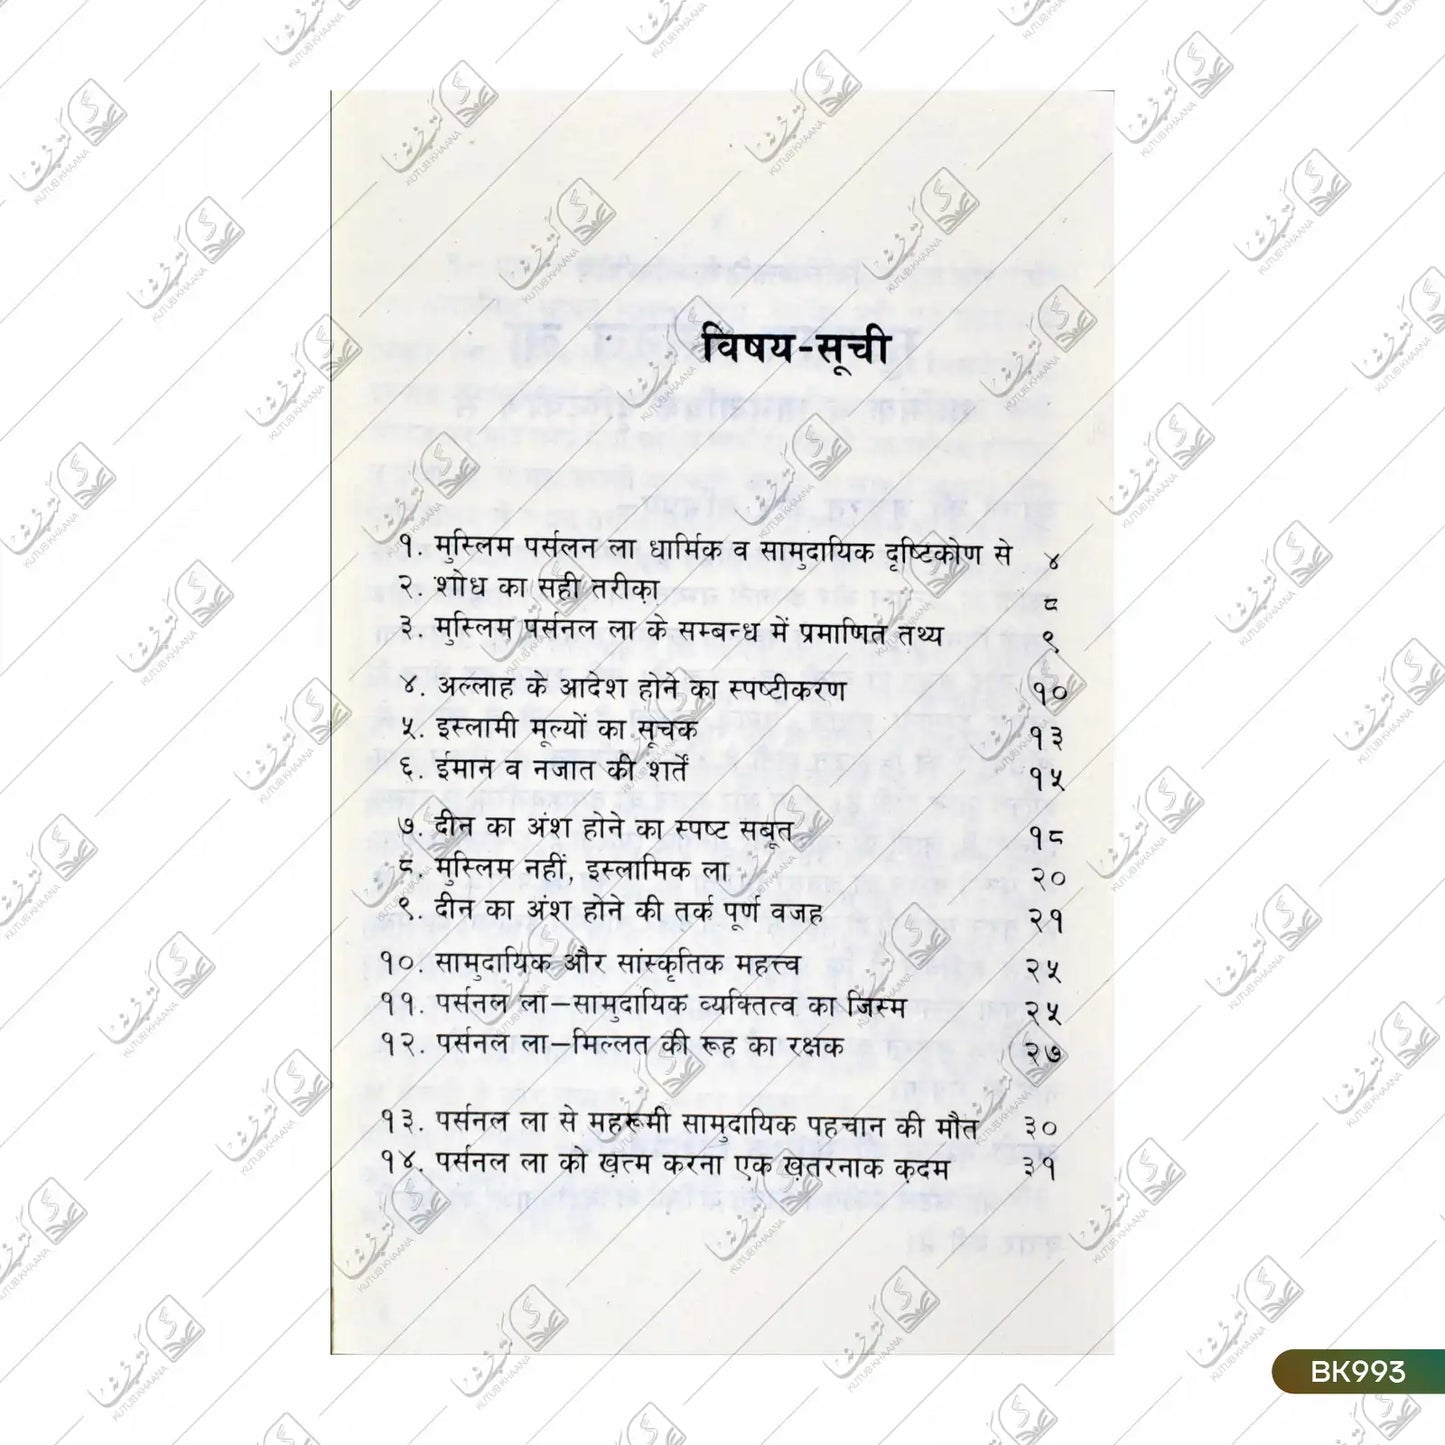 विषय-सूची
१. मुस्लिम पर्सलन ला धार्मिक व सामुदायिक दृष्टिकोण से ४
२. शोध का सही तरीक़ा ८
३. मुस्लिम पर्सनल ला के सम्बन्ध में प्रमाणित तथ्य ९
४. अल्लाह के आदेश होने का स्पष्टीकरण १०
५. इस्लामी मूल्यों का सूचक १३
६. ईमान व नजात की शर्तें १५
७. दीन का अंश होने का स्पष्ट सबूत १८
८. मुस्लिम नहीं, इस्लामिक ला २०
९. दीन का अंश होने की तर्क पूर्ण वजह २१
१०. सामुदायिक और सांस्कृतिक महत्त्व २५
११. पर्सनल ला–सामुदायिक व्यक्तित्व का जिस्म २५
१२. पर्सनल ला–मिल्लत की रूह का रक्षक २७
१३. पर्सनल ला से महरूमी सामुदायिक पहचान की मौत ३०
१४. पर्सनल ला को ख़त्म करना एक ख़तरनाक क़दम ३१
BK993
KUTUB KHAANA